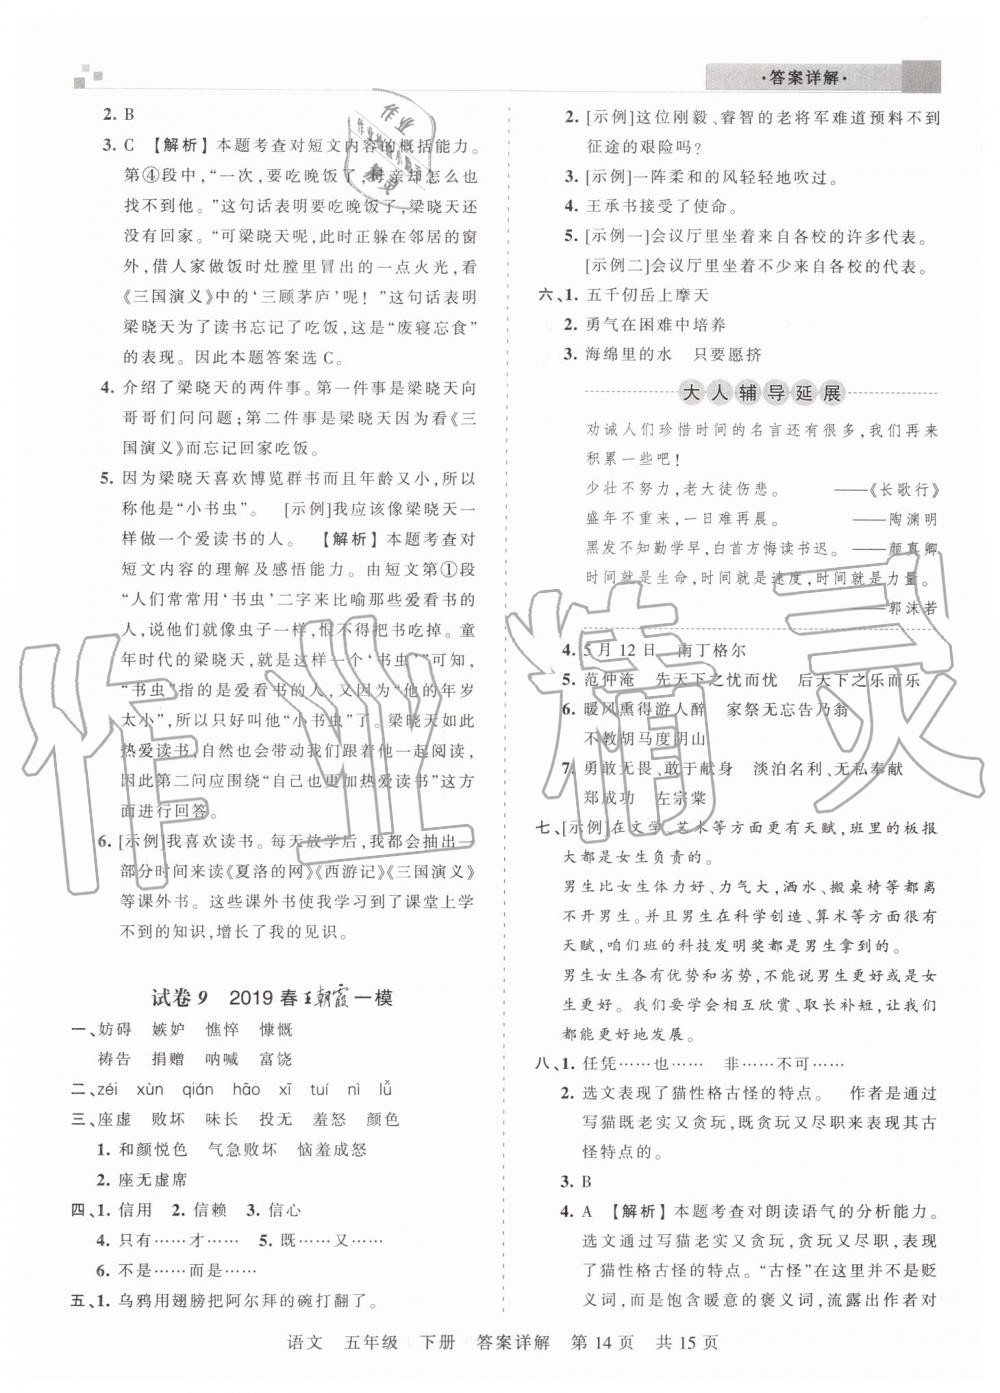 ·答案详解·
2. B
3. C 【解析】本题考查对短文内容的概括能力。
第④段中，“一次，要吃晚饭了，母亲却怎么也
找不到他。”这句话表明要吃晚饭了，梁晓天还
没有回家。“可梁晓天呢，此时正躲在邻居的窗
外，借人家做饭时灶膛里冒出的一点火光，看
《三国演义》中的‘三顾茅庐’呢！”这句话表明
梁晓天为了读书忘记了吃饭，这是“废寝忘食”
的表现。因此本题答案选C。
4. 介绍了梁晓天的两件事。第一件事是梁晓天向
哥哥们问问题；第二件事是梁晓天因为看《三
国演义》而忘记回家吃饭。
5. 因为梁晓天喜欢博览群书而且年龄又小，所以
称他是“小书虫”。 [示例]我应该像梁晓天一
样做一个爱读书的人。 【解析】本题考查对
短文内容的理解及感悟能力。由短文第①段
“人们常常用‘书虫’二字来比喻那些爱看书的
人，说他们就像虫子一样，恨不得把书吃掉。童
年时代的梁晓天，就是这样一个‘书虫’”可知，
“书虫”指的是爱看书的人，又因为“他的年岁
太小”，所以只好叫他“小书虫”了。梁晓天如此
热爱读书，自然也会带动我们跟着他一起阅读，
因此第二问应围绕“自己也更加热爱读书”这方
面进行回答。
6. [示例]我喜欢读书。每天放学后，我都会抽出一
部分时间来读《夏洛的网》《西游记》《三国演义》
等课外书。这些课外书使我学习到了课堂上学
不到的知识，增长了我的见识。
试卷9 2019春王朝霞一模
一、妨碍 嫉妒 憔悴 慷慨
祷告 捐赠 呐喊 富饶
二、zéi xùn qián hāo xī tuí nì lǚ
三、座虚 败坏 味长 投无 羞怒 颜色
1. 和颜悦色 气急败坏 恼羞成怒
2. 座无虚席
四、1. 信用 2. 信赖 3. 信心
4. 只有……才…… 5. 既……又……
6. 不是……而是……
五、1. 乌鸦用翅膀把阿尔拜的碗打翻了。
2. [示例]这位刚毅、睿智的老将军难道预料不到
征途的艰险吗？
3. [示例]一阵柔和的风轻轻地吹过。
4. 王承书接受了使命。
5. [示例一]会议厅里坐着来自各校的许多代表。
[示例二]会议厅里坐着不少来自各校的代表。
六、1. 五千仞岳上摩天
2. 勇气在困难中培养
3. 海绵里的水 只要愿挤
大人辅导延展
劝诫人们珍惜时间的名言还有很多，我们再来
积累一些吧！
少壮不努力，老大徒伤悲。 ——《长歌行》
盛年不重来，一日难再晨。 ——陶渊明
黑发不知勤学早，白首方悔读书迟。——颜真卿
时间就是生命，时间就是速度，时间就是力量。
——郭沫若
4. 5月12日 南丁格尔
5. 范仲淹 先天下之忧而忧 后天下之乐而乐
6. 暖风熏得游人醉 家祭无忘告乃翁
不教胡马度阴山
7. 勇敢无畏、敢于献身 淡泊名利、无私奉献
郑成功 左宗棠
七、[示例]在文学、艺术等方面更有天赋，班里的板报
大都是女生负责的。
男生比女生体力好、力气大，洒水、搬桌椅等都离
不开男生。并且男生在科学创造、算术等方面很有
天赋，咱们班的科技发明奖都是男生拿到的。
男生女生各有优势和劣势，不能说男生更好或是女
生更好。我们应学会相互欣赏、取长补短，让我们
都能更好地发展。
八、1. 任凭……也…… 非……不可……
2. 选文表现了猫性格古怪的特点。 作者是通过
写猫既老实又贪玩，既贪玩又尽职来表现其古
怪特点的。
3. B
4. A 【解析】本题考查对朗读语气的分析能力。
选文通过写猫老实又贪玩，贪玩又尽职，表现
了猫性格古怪的特点。“古怪”在这里并不是贬
义词，而是饱含暖意的褒义词，流露出作者对
语文 五年级 下册 答案详解 第14页 共15页
作业精灵